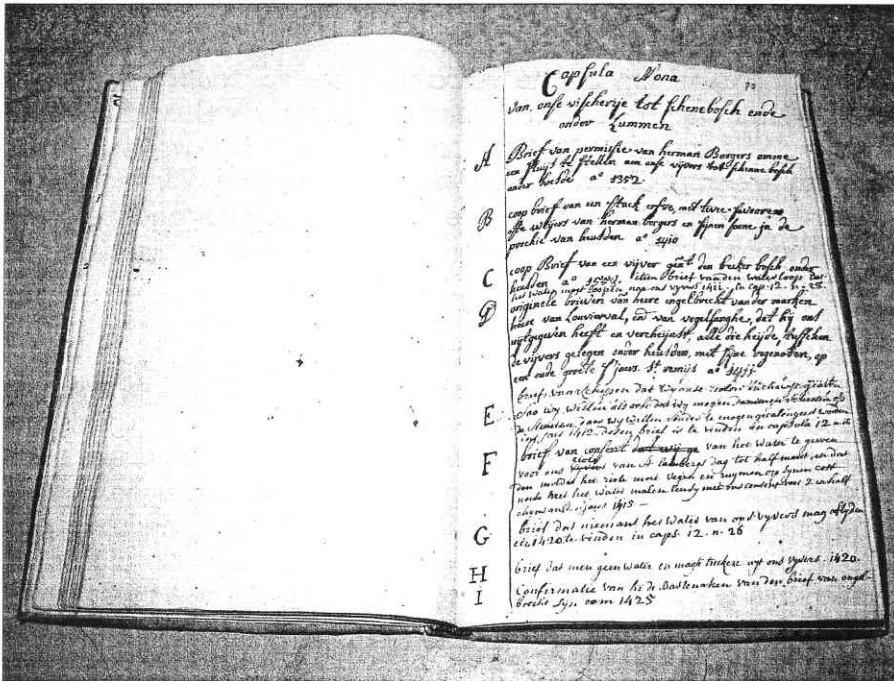 Capsula Nona
van onse visscherije tot schenebosch ende
onder Lummen
A Brief van permissie van herman Borgers omme
een sluijs te stellen aen onse vijvers tot schennebosch
onder heusde a° 1352
B coop brief van een stuck erfve, met twee
ofte weijers van herman borgers en sijnen sone in de
prochie van heusden a° 1410
C coop Brief van een vijver gen̄t den becker bosch onder
heusden a° item brief van den waterloop dat
het water moet loopen nae ons vyvers 1411. in cap. 12. n. 28.
D originele brieven van heere engelbrecht vander marcken
heere van Louvierval, end van vogelsanghe, dat hij ons
uijtgegeven heeft en verchijnst, alle die heijde, tusschen
de vijvers gelegen onder heusden, met sijne, op
een oude groote s'jaers St. remijs a°
E brief van schepen dat wy onse
soo wy willen als ook dat wy mogen
de dan wy willen sonder te mogen worden
int jaer 1412. desen brief is te vinden in capsula 12 n.
F brief van consent dat wij ge van het water te geven
voor ons riole van St lambergs dag tot half maert, en dat
den molder het riole moet vegen en ruymen op synen cost
het water malen met ons consent voor 2
s'jaers 1415 –
G brief dat niemant het water van ons vyvers mag
etc. 1420. te vinden in caps. 12. n. 26
H brief dat men geen water en magh trecken uyt ons vyvers. 1420.
I Confirmatie van h: de Bastenaken van den brief van engel-
brecht syn oom 1425